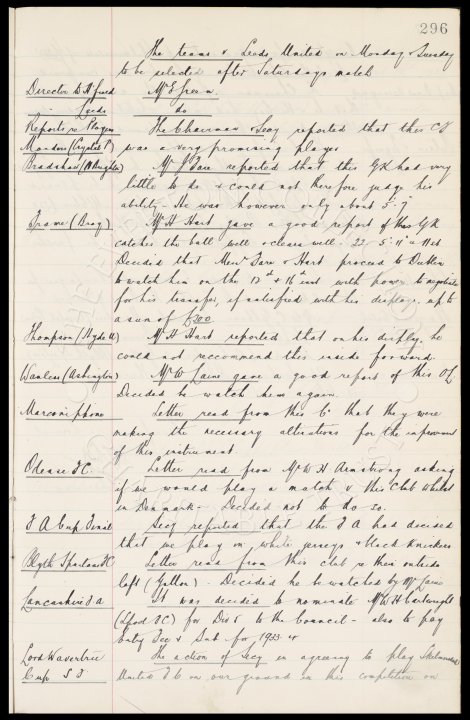 296
The teams v Leeds United on Monday & Tuesday
to be selected after Saturdays match
Director to H'field Mr E Green.
" Leeds do
Reports re Players The Chairman & Secy reported that this CF
Manders (Crystal P) was a very promising player
Bradshaw (N Brighton) Mr J Fare reported that this GK had very
little to do & could not therefore judge his
ability. He was however only about 5'.7"
Frame (Bray) Mr H Hart gave a good report of this GK
catches the ball well & clears well. 22 5'.11" 11st
Decided that Messrs Fare & Hart proceed to Dublin
to watch him on the & 16th inst with power to negotiate
for his transfer, if satisfied with his display, up to
a sum of £300
Thompson (Hyde U) Mr H Hart reported that on his display he
could not reccommend this inside forward.
Wanless (Ashington) Mr W Laine gave a good report of this OL
Decided to watch him again.
Marconiphone Letter read from this Co that they were
making the necessary alterations for the improvement
of this instrument
Odense FC. Letter read from Mr W H Armstrong asking
if we would play a match v this Club whilst
in Denmark. Decided not to do so.
F A Cup Final Secy reported that the F A had decided
that we play in white jerseys & black knickers
Blyth Spartans FC Letter read from this club re their outside
left (Gallon). Decided he be watched by Mr Laine
Lancashire F A It was decided to nominate Mr W H Cartwright
FC) for Div 5 to the Council - also to pay
Entry Fee & Sub. for 1933-4
Lord Wavertree The action of Secy in agreeing to play Skelmersdale
Cup S F United F C on our ground in this competition on